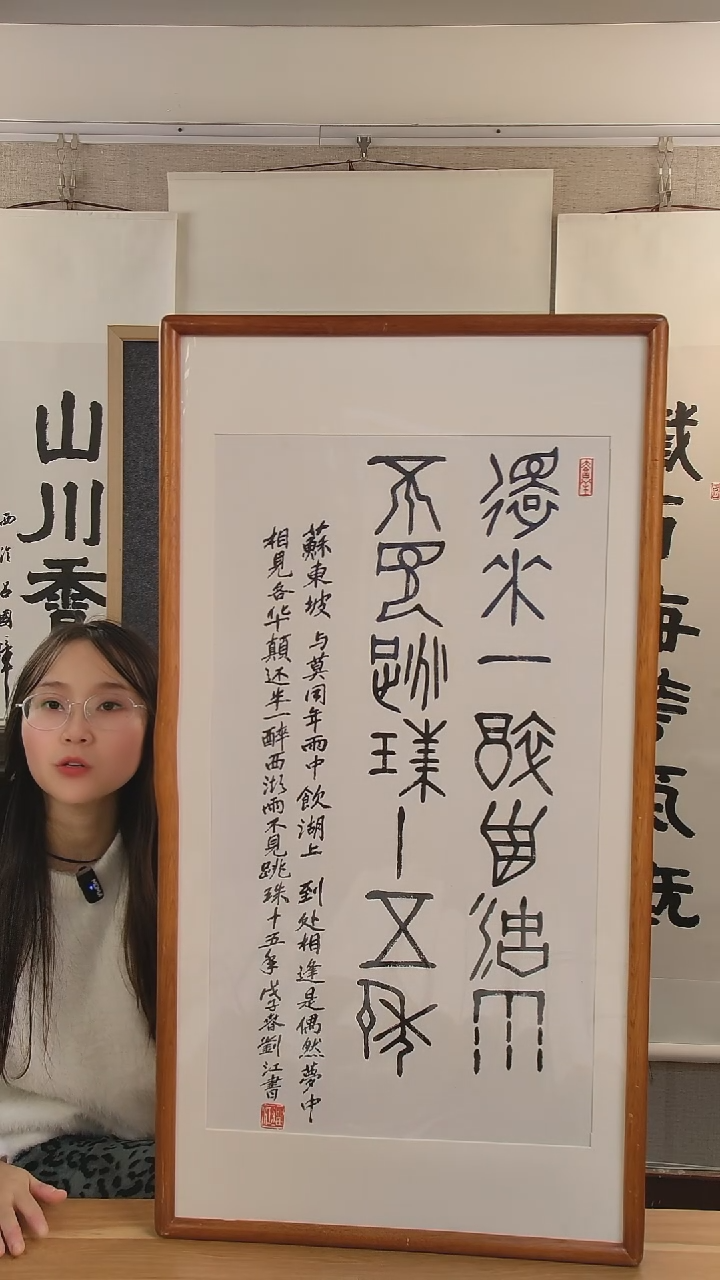 還来一醉西湖雨
不見跳珠十五年
蘇東坡 与莫同年雨中飲湖上 到处相逢是偶然夢中
相見各华顛还来一醉西湖雨不見跳珠十五年戊子春劉江書
山川香